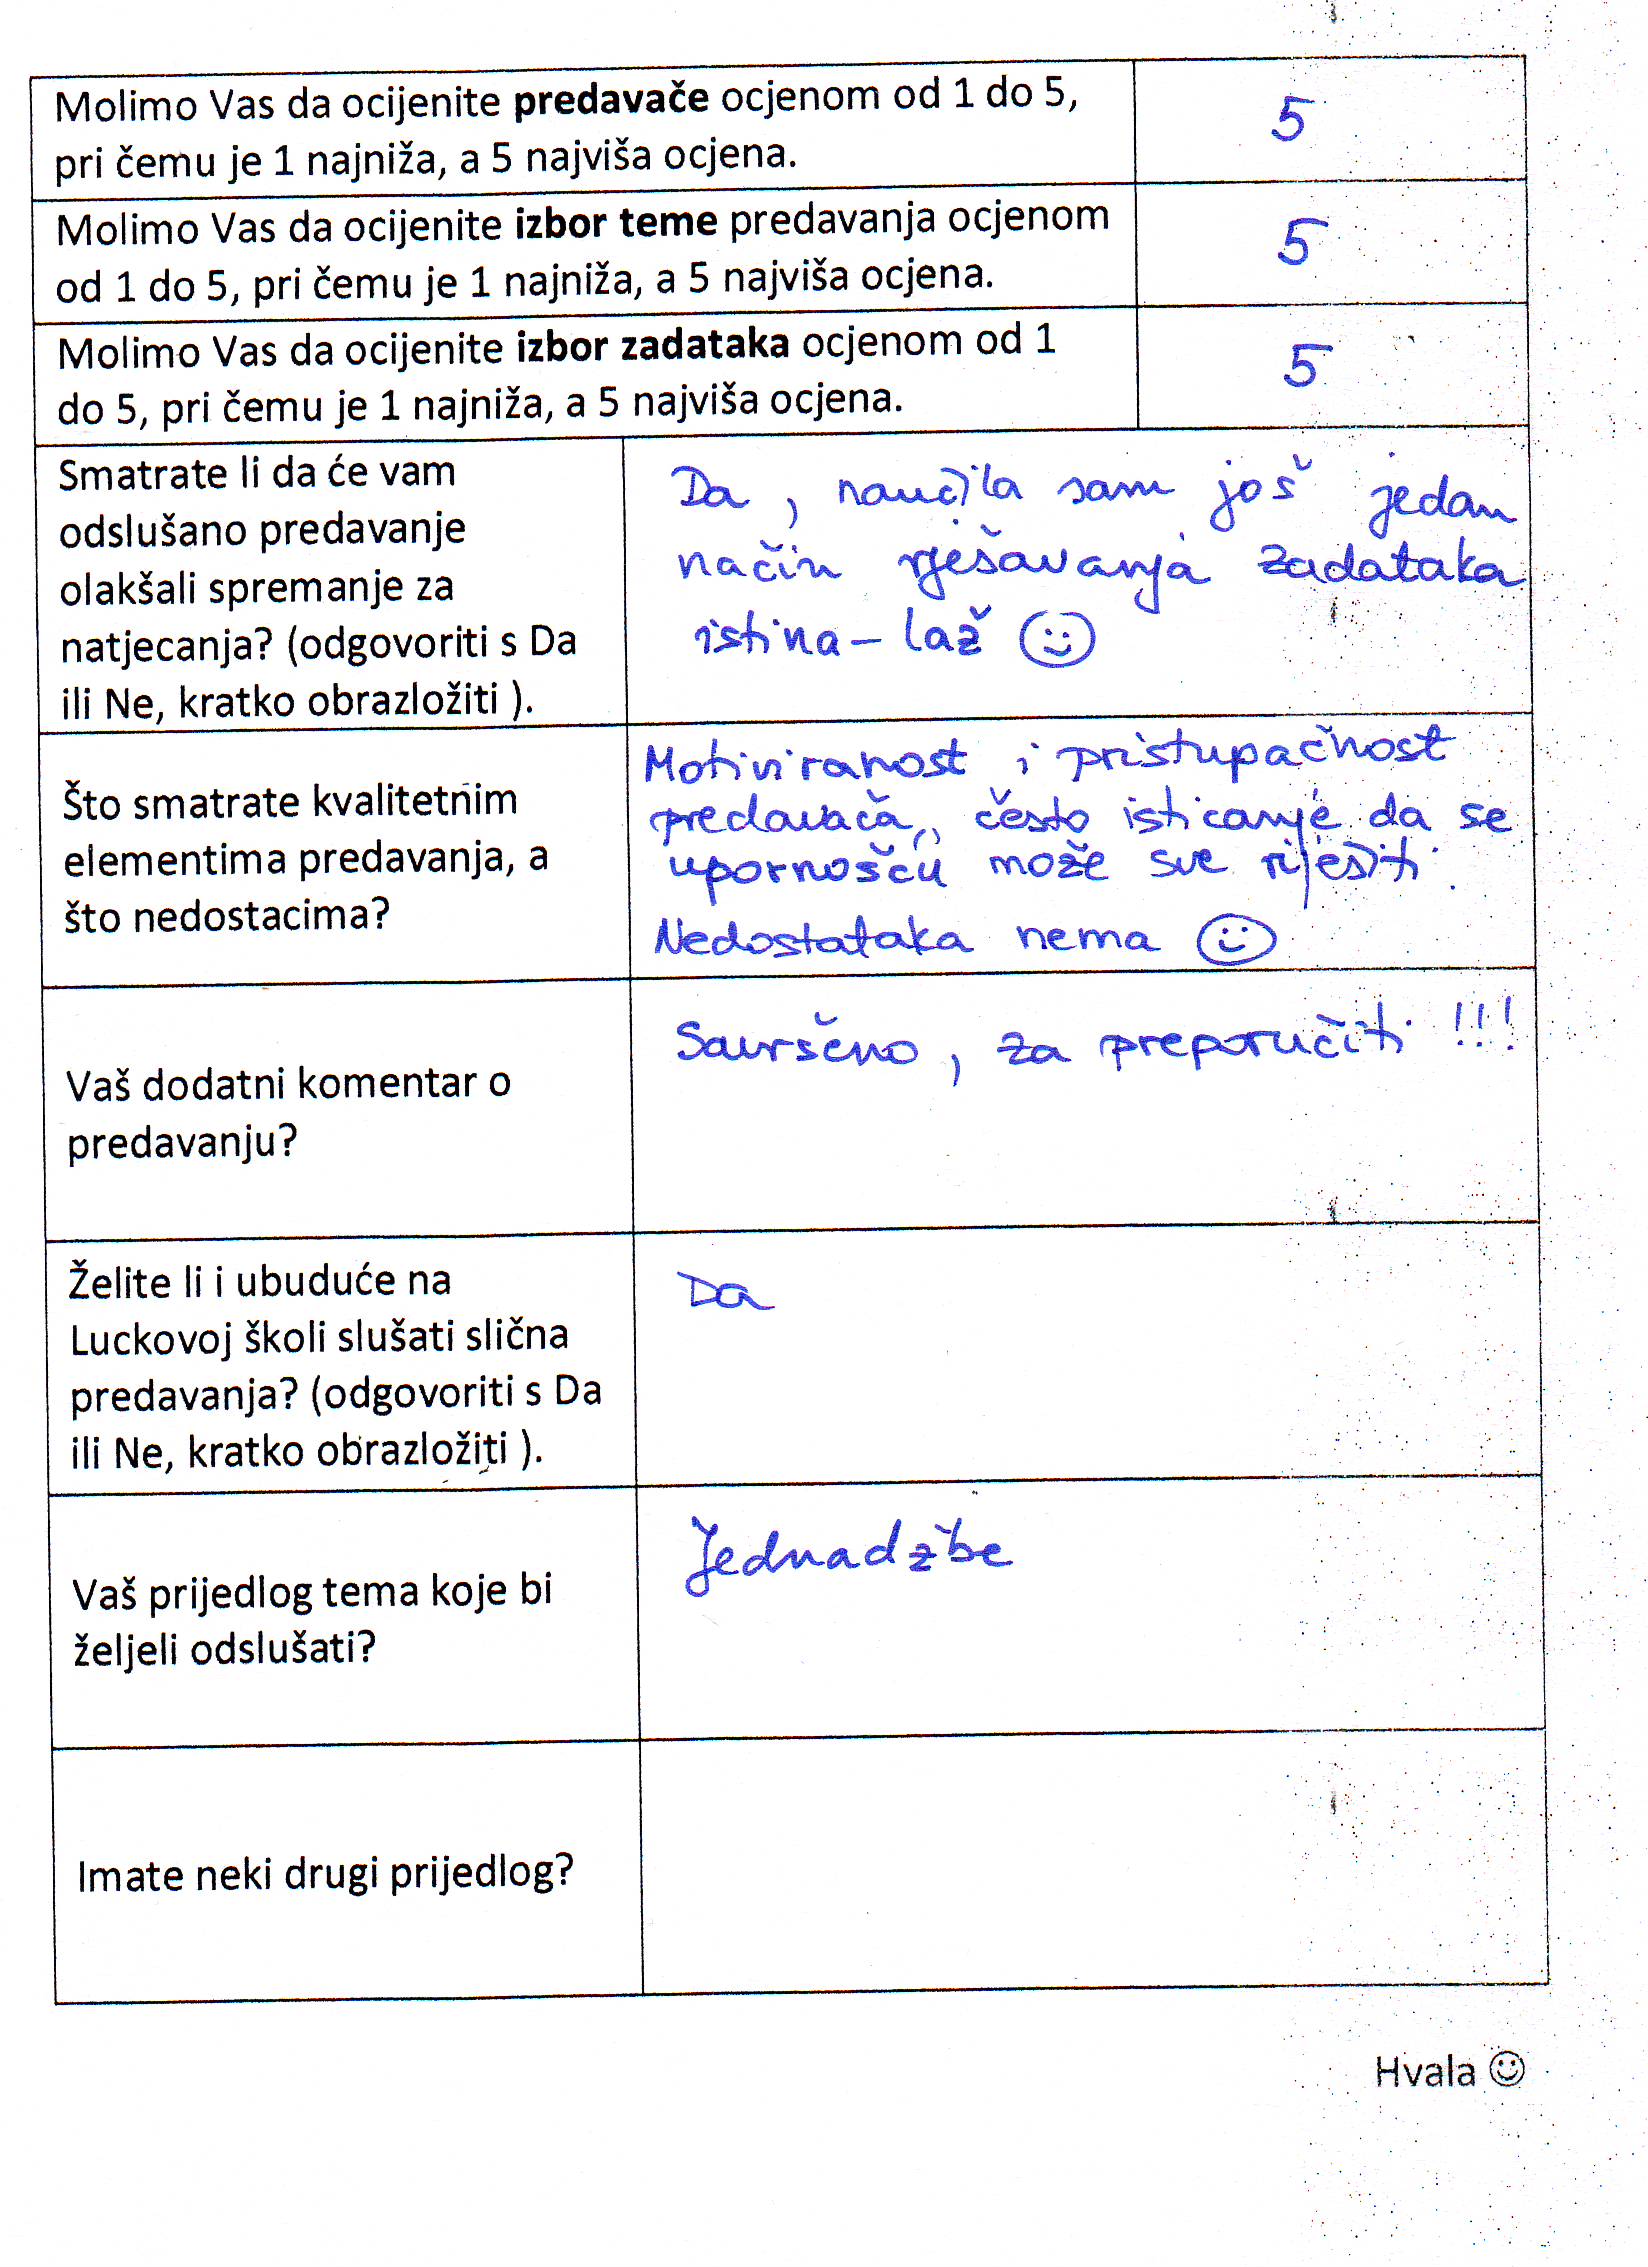 Molimo Vas da ocijenite predavače ocjenom od 1 do 5,
pri čemu je 1 najniža, a 5 najviša ocjena.
5
Molimo Vas da ocijenite izbor teme predavanja ocjenom
od 1 do 5, pri čemu je 1 najniža, a 5 najviša ocjena.
5
Molimo Vas da ocijenite izbor zadataka ocjenom od 1
do 5, pri čemu je 1 najniža, a 5 najviša ocjena.
5
Smatrate li da će vam
odslušano predavanje
olakšali spremanje za
natjecanja? (odgovoriti s Da
ili Ne, kratko obrazložiti ).
Da, naučila sam još jedan
način rješavanja zadataka
istina - laž ☺
Što smatrate kvalitetnim
elementima predavanja, a
što nedostacima?
Motiviranost i pristupačnost
predavača, često isticanje da se
upornošću može sve riješiti.
Nedostataka nema ☺
Vaš dodatni komentar o
predavanju?
Savršeno, za preporučiti !!!
Želite li i ubuduće na
Luckovoj školi slušati slična
predavanja? (odgovoriti s Da
ili Ne, kratko obrazložiti ).
Da
Vaš prijedlog tema koje bi
željeli odslušati?
Jednadžbe
Imate neki drugi prijedlog?
Hvala ☺